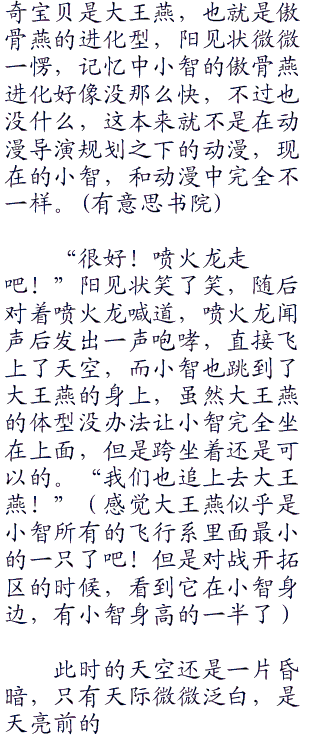 奇宝贝是大王燕，也就是傲
骨燕的进化型，阳见状微微
一愣，记忆中小智的傲骨燕
进化好像没那么快，不过也
没什么，这本来就不是在动
漫导演规划之下的动漫，现
在的小智，和动漫中完全不
一样。(有意思书院)
“很好！喷火龙走
吧！”阳见状笑了笑，随后
对着喷火龙喊道，喷火龙闻
声后发出一声咆哮，直接飞
上了天空，而小智也跳到了
大王燕的身上，虽然大王燕
的体型没办法让小智完全坐
在上面，但是跨坐着还是可
以的。“我们也追上去大王
燕！”（感觉大王燕似乎是
小智所有的飞行系里面最小
的一只了吧！但是对战开拓
区的时候，看到它在小智身
边，有小智身高的一半了）
此时的天空还是一片昏
暗，只有天际微微泛白，是
天亮前的